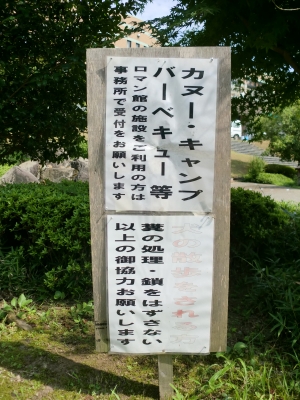 カヌー・キャンプ
バーベキュー等
ロマン館の施設をご利用の方は
事務所で受付をお願いします
の散歩をされる
糞の処理・鎖をはずさない
以上の御協力お願いします